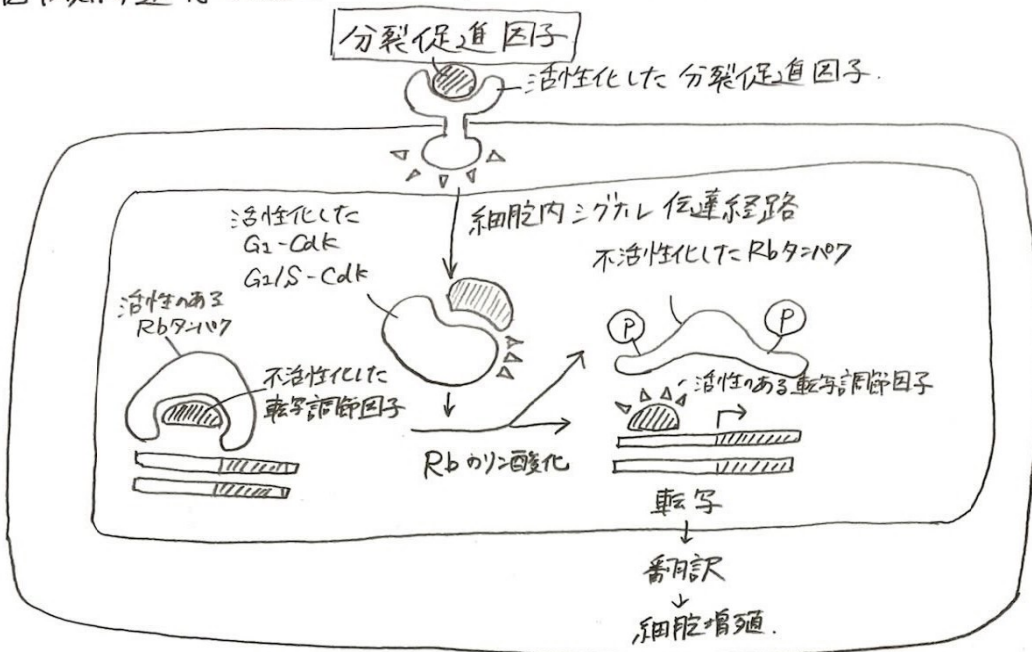 分裂促進因子
活性化した分裂促進因子.
細胞内シグナル伝達経路
活性化した
G1-Cdk
G1/S-Cdk
不活性化したRbタンパク
活性のある
Rbタンパク
P
P
不活性化した
転写調節因子
活性のある転写調節因子
Rbのリン酸化
転写
翻訳
細胞増殖.